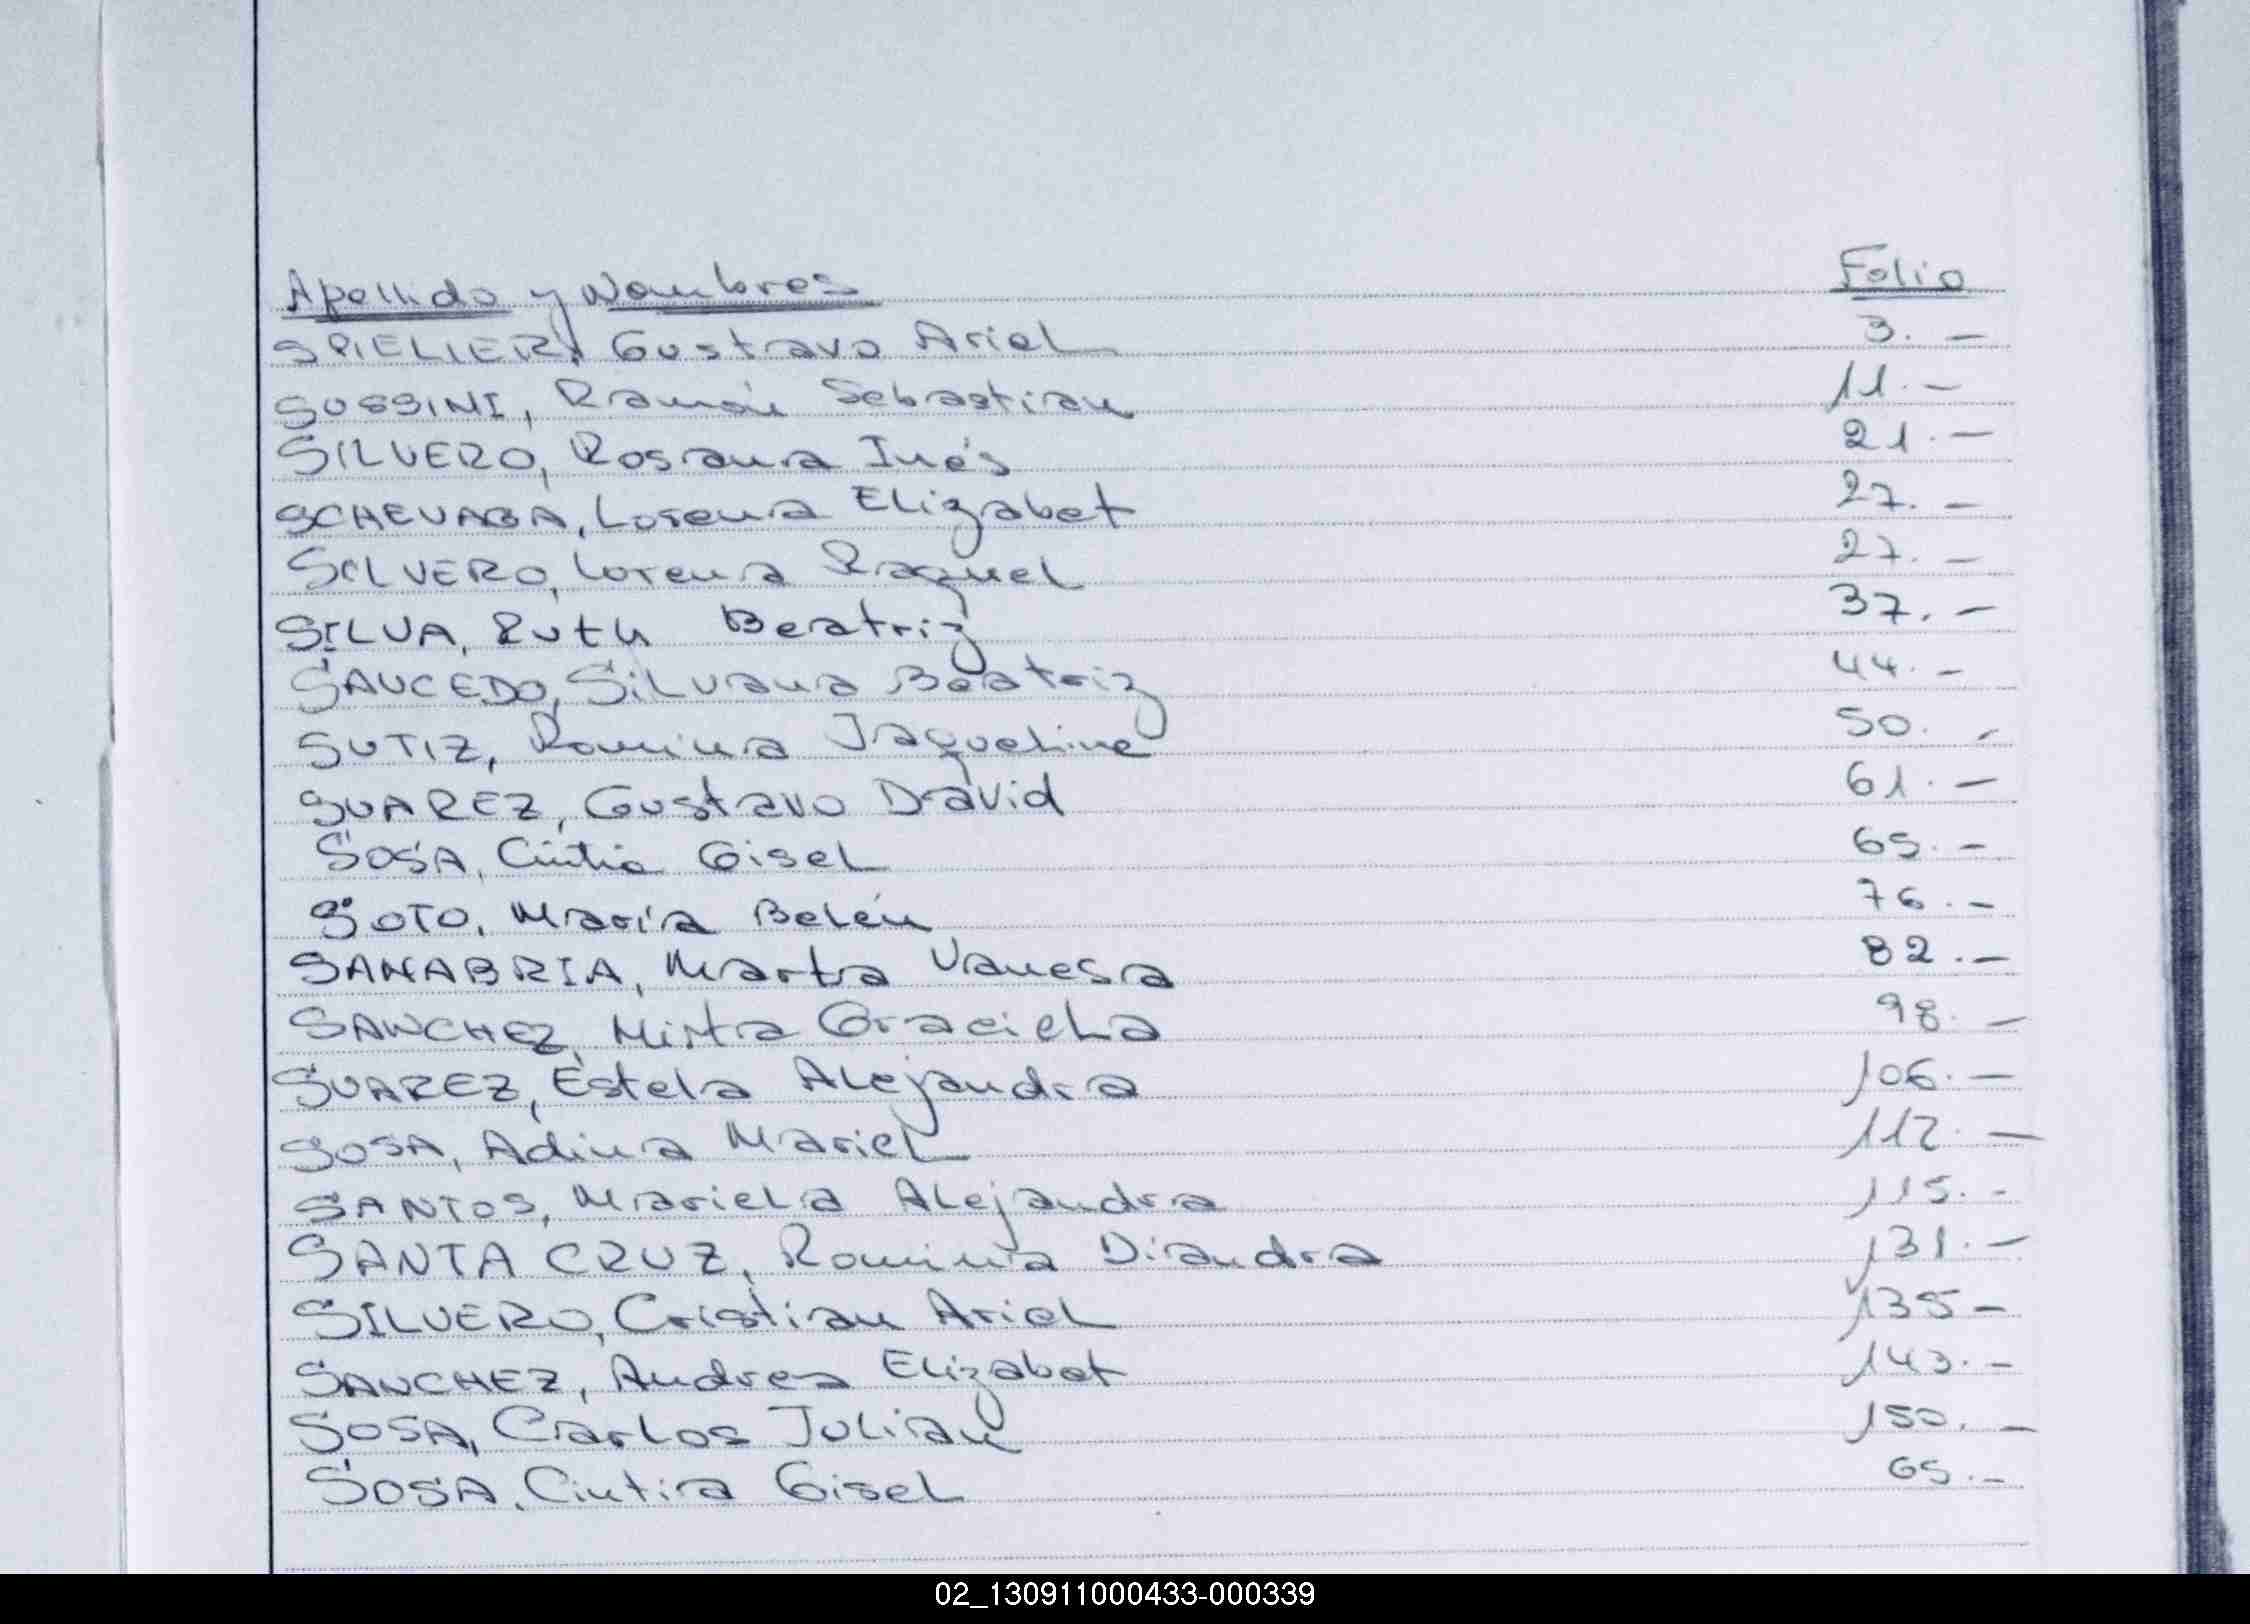 Apellido y Nombres Folio
SPIELIER, Gustavo Ariel 3.-
SOSSINI, Ramón Sebastian 11.-
SILVERO, Rosana Inés 21.-
SCHEVAGA, Lorena Elizabet 27.-
SILVERO, Lorena Raquel 27.-
SILVA, Ruth Beatriz 37.-
SAUCEDO, Silvana Beatriz 44.-
SUTIZ, Romina Jaqueline 50.-
SUAREZ, Gustavo David 61.-
SOSA, Cintia Gisel 65.-
SOTO, María Belén 76.-
SANABRIA, Marta Vanesa 82.-
SANCHEZ, Mirta Graciela 98.-
SUAREZ, Estela Alejandra 106.-
SOSA, Adina Mariel 112.-
SANTOS, Mariela Alejandra 115.-
SANTA CRUZ, Romina Diandra 131.-
SILVERO, Cristian Ariel 135-
SANCHEZ, Andrea Elizabet 143.-
SOSA, Carlos Julian 150.-
SOSA, Cintia Gisel 65.-
02_130911000433-000339